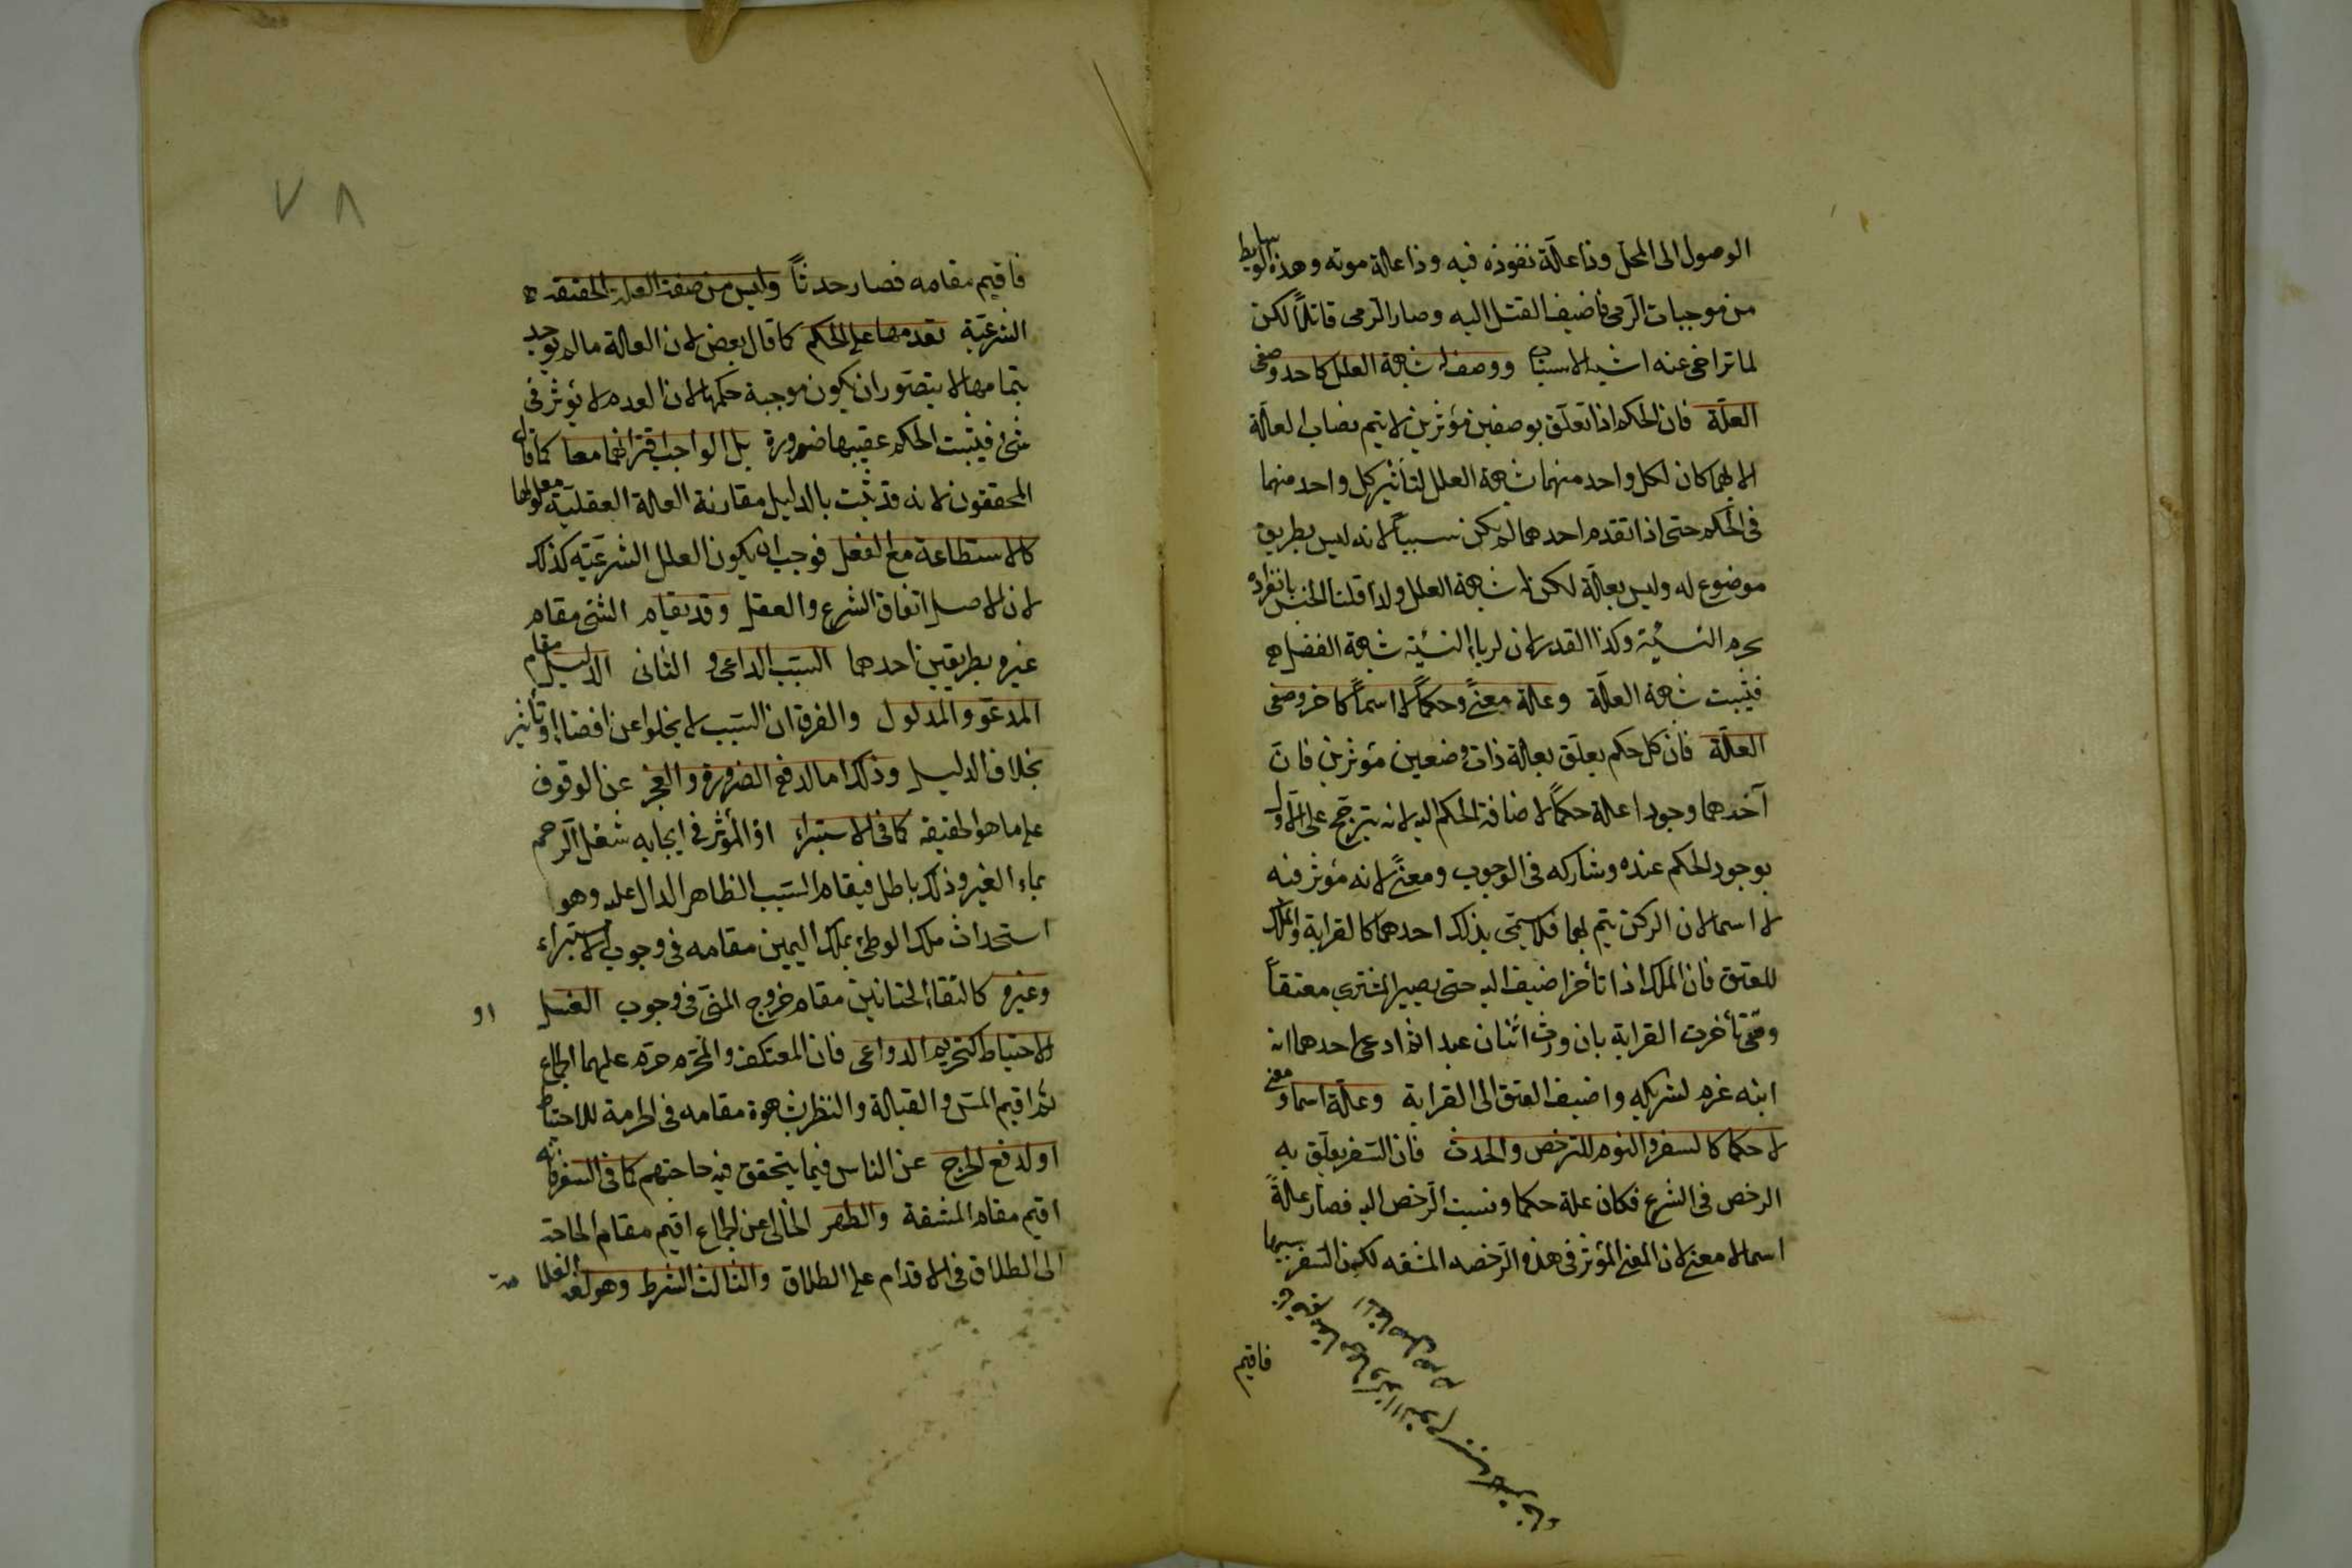 الوصول الى المحل وذا علّة نفوذه فيه وذا علة موته وهذه الوسايط
من موجبات الرمى فاضيف القتل اليه وصار الرمى قاتلاً لكن
لما تراخى عنه اشبه الاسباب ووصف له شبهة العلل كاحد وصفى
العلّة فان الحكم اذا تعلّق بوصفين مؤثرين لا يتم نصاب العلّة
الا بهما كان لكل واحد منهما شبهة العلل لتأثير كل واحد منهما
فى الحكم حتى اذا تقدم احدهما لم يكن سبباً لانه ليس بطريق
موضوع له وليس بعلّة لكن له شبهة العلل ولذا قلنا الجنس بانفراده
يحرم النسيئة وكذا القدر لان لربا النسئية شبهة الفضل
فيثبت شبهة العلّة وعلة معنىً وحكماً لا اسماً كاخر وصفى
العلّة فان كل حكم يعلّق بعلة ذات وضعين مؤثرين فان
آخرهما وجودا علة حكماً لاضافة الحكم اليه لانه يترجّح على الاول
بوجود الحكم عنده وشاركه فى الوجوب ومعنىً لانه مؤثر فيه
لا اسما لان الركن يتم بهما فلا يسمّى بذلك احدهما كالقرابة والملك
للعتق فان الملك اذا تأخر اضيف اليه حتى يصير المشترى معتقاً
ومتى تأخرت القرابة بان ورث اثنان عبدا ثم ادعى احدهما انه
ابنه غرم لشريكه واضيف العتق الى القرابة وعلّة اسما ومعنى
لا حكما كالسفر والنوم للترخص والحدث فان السفر يعلّق به
الرخص فى الشرع فكان علة حكما ونسبت الرّخص اليه فصار علّةً
اسما لا معنى لان المعنى المؤثر فى هذه الرّخصه المشقه لكن السفر سببها
فاقيم
٧٨
فاقيم مقامه فصار حدثاً وليس من صفة العلة الحقيقة
الشرعيّة تقدمها على الحكم كما قال بعض لان العلة مالم يوجد
بتمامها لا يتصّور ان يكون موجبة حكمها لان العدم لا يؤثر فى
شئ فيثبت الحكم عقيبها ضرورة بل الواجب اقترانهما معا كما قال
المحققون لانه قد ثبت بالدليل مقارنة العلة العقليّة معلولها
كالاستطاعة مع الفعل فوجب ان يكون العلل الشرعيّة كذلك
لان الاصل اتفاق الشرع والعقل وقد يقام الشئ مقام
غيره بطريقين احدهما السبب الداعى والثانى الدليل مقام
المدعو والمدلول والفرق ان السّبب لا يخلوا عن افضاء او تأثير
بخلاف الدليل وذلك اما لدفع الضرورة والعجز عن الوقوف
على ما هو الحقيقه كما فى الاستبراء اذ المؤثر فى ايجابه شغل الرحم
بماء الغير وذلك باطل فيقام السبب الظاهر الدال عليه وهو
استحداث ملك الوطئ بملك اليمين مقامه فى وجوب الاستبراء
وغيره كالتقاء الختانين مقام خروج المنىّ فى وجوب الغسل او
الاحتياط كتحريم الدواعى فان المعتكف والمحرم حرم عليهما الجماع
ثم اقيم المسّ والقبلة والنظر بشهوة مقامه فى الحرمة للاحتياط
او لدفع الحرج عن الناس فيما يتحقق فيه حاجتهم كما فى السفر فانه
اقيم مقام المشقة والطهر الخالى عن الجماع اقيم مقام الحاجة
الى الطلاق فى الاقدام على الطلاق والثالث الشرط وهو لغة العلامة